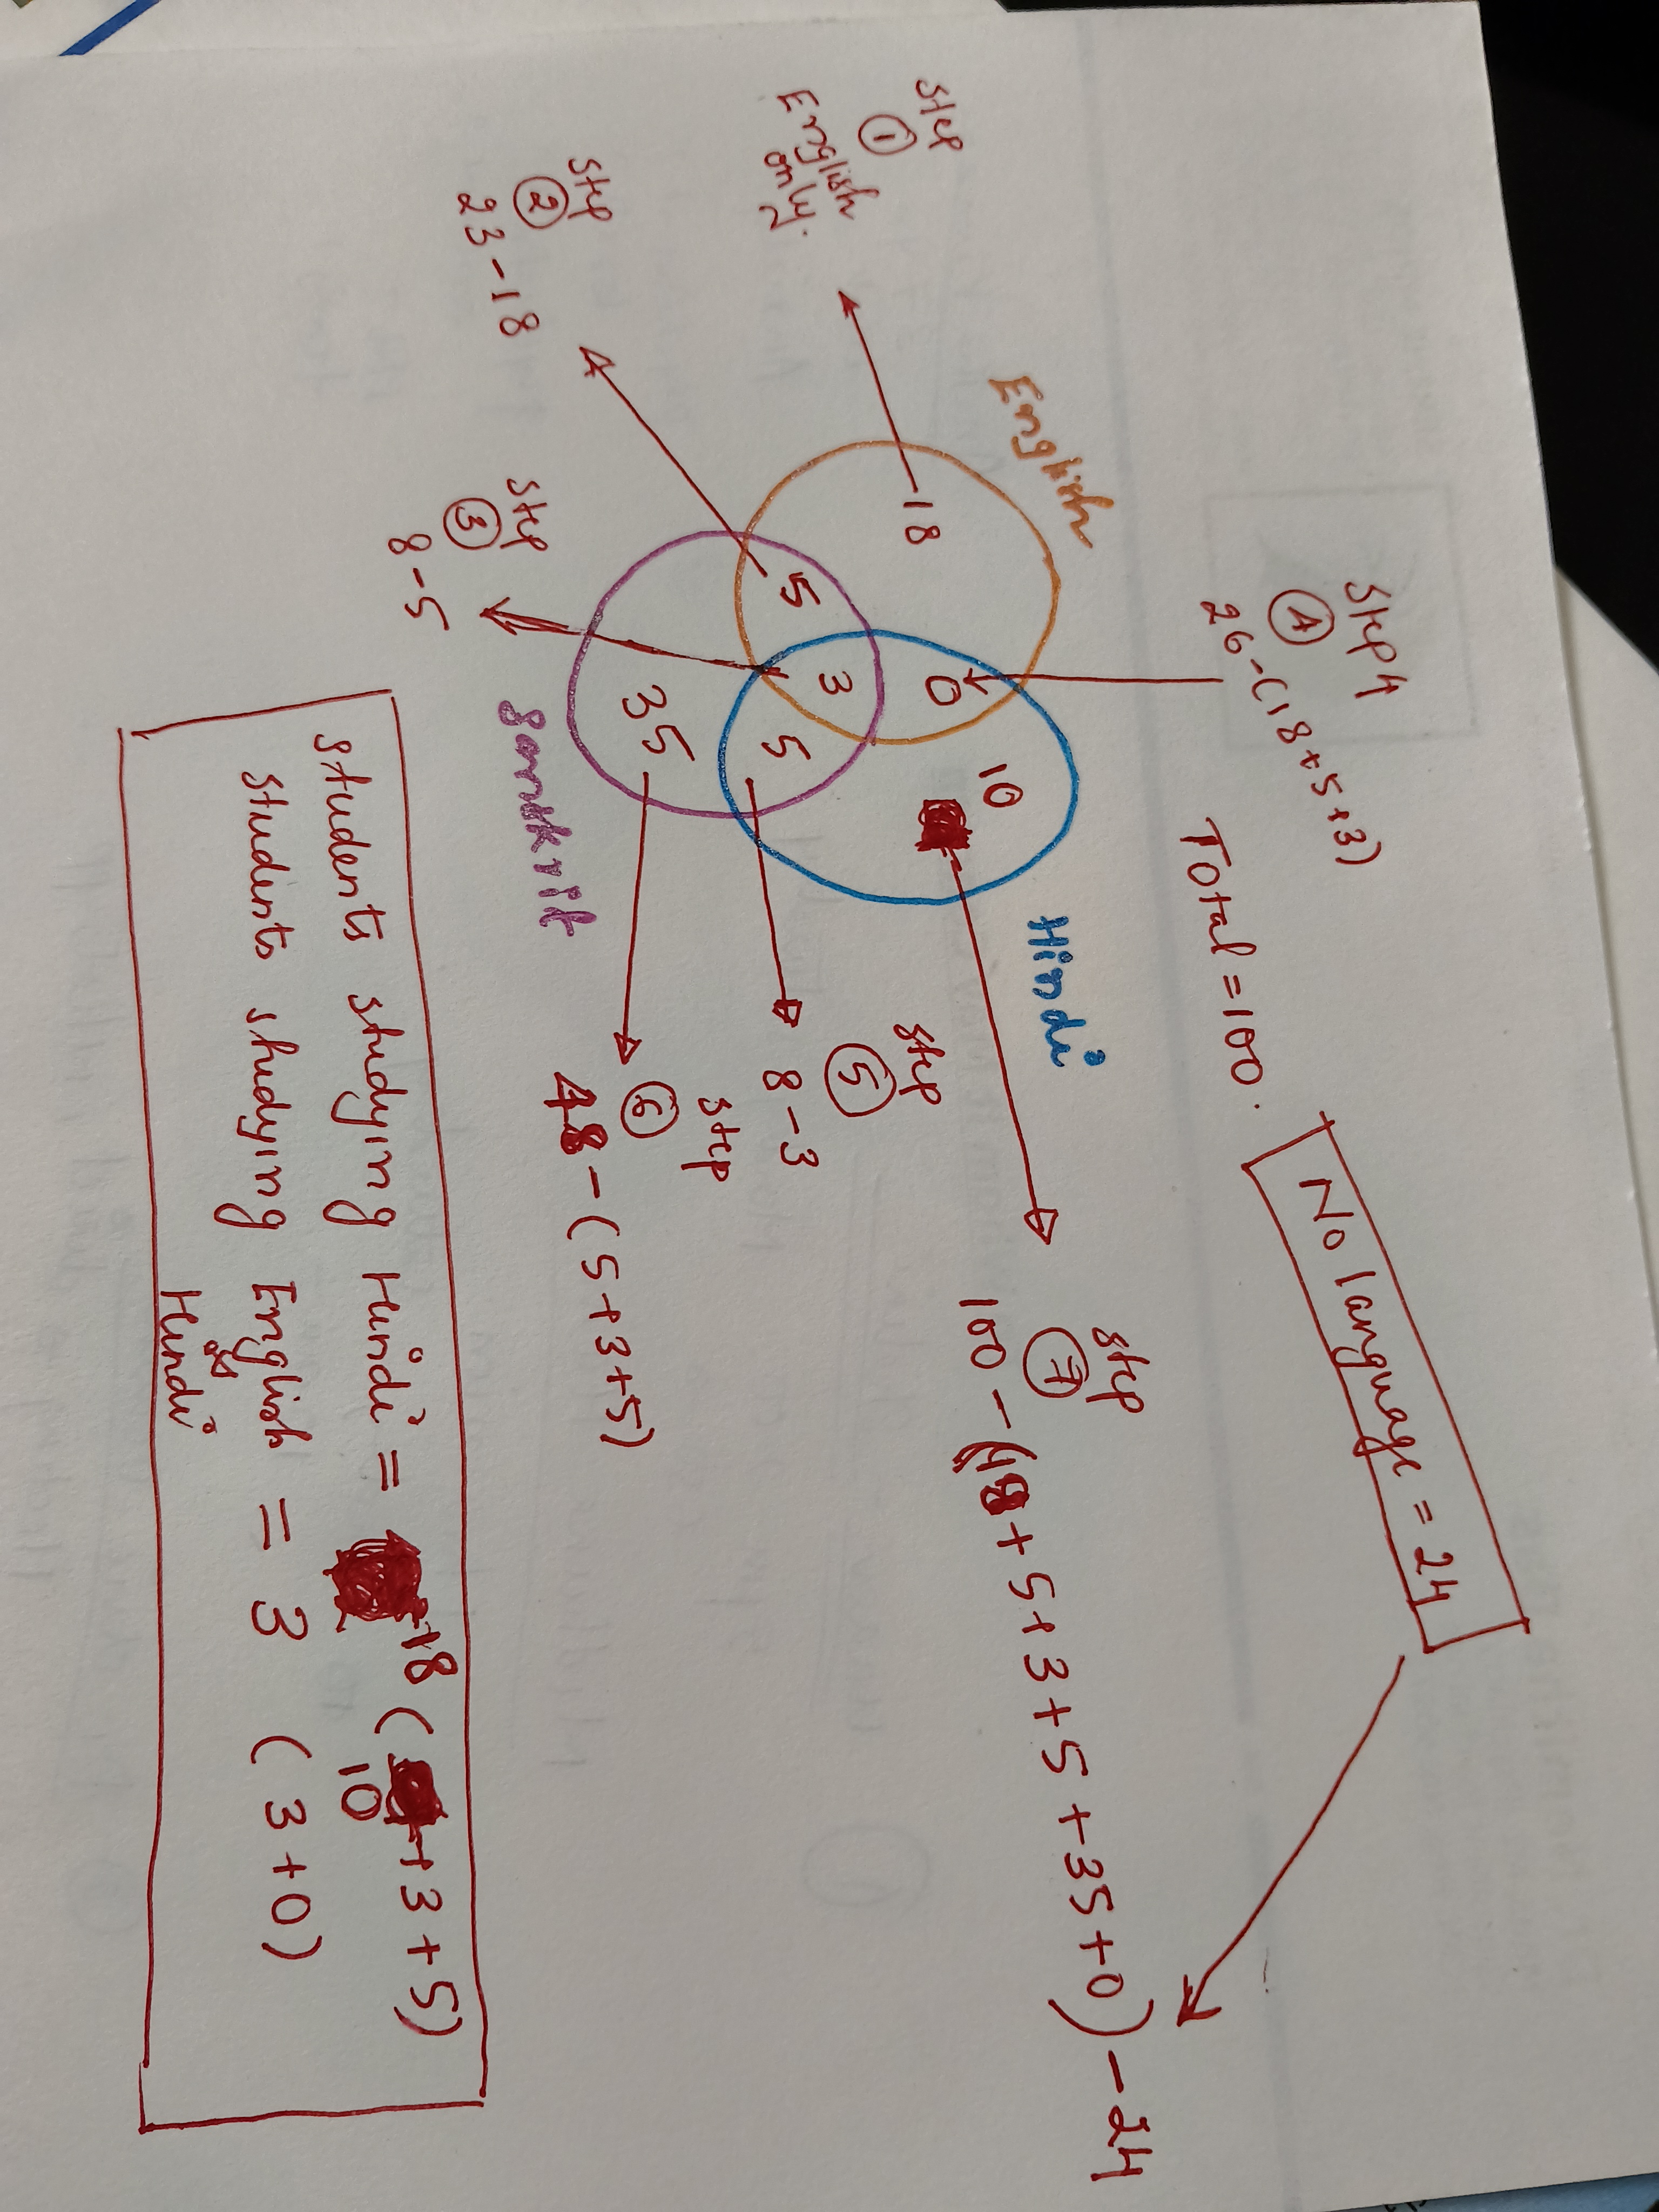 Step 4
4
26-(18+5+3)
Total = 100.
No language = 24
Step
1
English
only.
English
Hindi
Sanskrit
18
0
10
5
3
5
35
Step
2
23-18
Step
3
8-5
Step
5
8-3
Step
6
48-(5+3+5)
Step
7
100-(18+5+3+5+35+0)-24
Students studying Hindi = 18 (10+3+5)
Students studying English = 3 (3+0)
Hindi